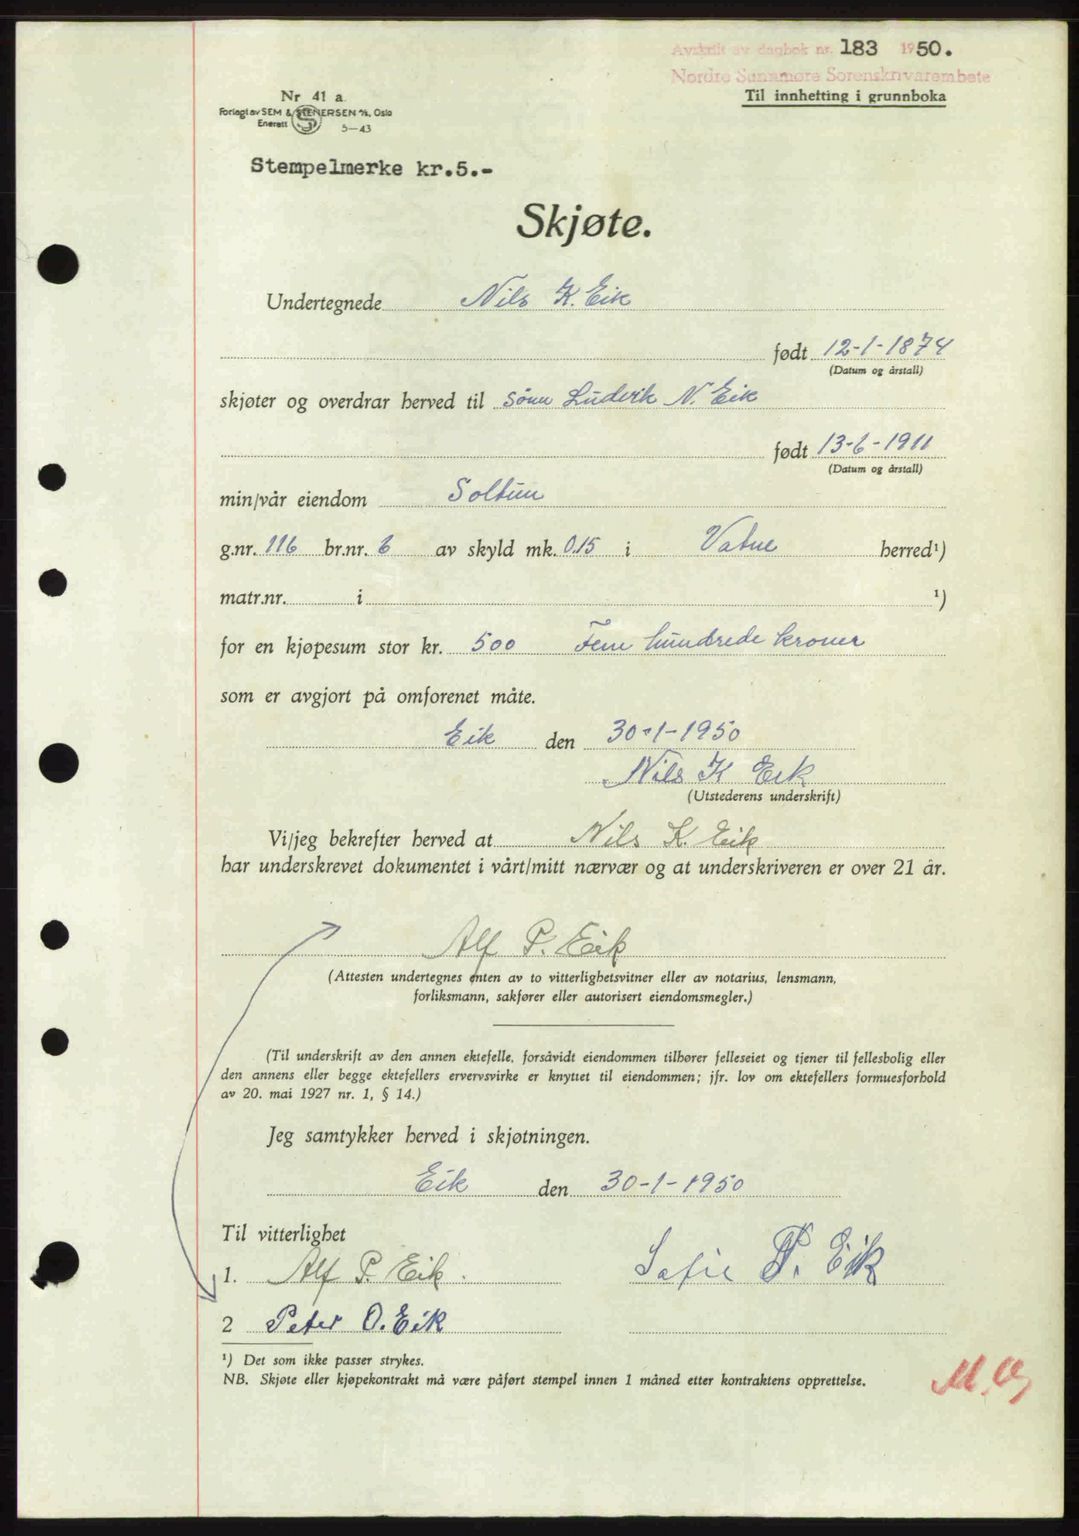 Avskrift av dagbok nr. 183 1950.
Nordre Sunnmøre Sorenskrivarembete
Til innhefting i grunnboka
Nr 41 a
Forlagt av SEM & STENERSEN A/S, Oslo
Enerett
5—43
Stempelmerke kr.5.-
Skjøte.
Undertegnede Nils K. Eik
født 12-1-1874
(Datum og årstall)
skjøter og overdrar herved til Sønn Ludvik N. Eik
født 13-6-1911
(Datum og årstall)
min/vår eiendom Soltun
g.nr. 116 br.nr. 6 av skyld mk. 0.15 i Vatne herred¹)
matr.nr. i ¹)
for en kjøpesum stor kr. 500 Fem hundrede kroner
som er avgjort på omforenet måte.
Eik den 30-1-1950
Nils K Eik
(Utstederens underskrift)
Vi/jeg bekrefter herved at Nils K. Eik
har underskrevet dokumentet i vårt/mitt nærvær og at underskriveren er over 21 år.
Alf P. Eik
(Attesten undertegnes enten av to vitterlighetsvitner eller av notarius, lensmann,
forliksmann, sakfører eller autorisert eiendomsmegler.)
(Til underskrift av den annen ektefelle, forsåvidt eiendommen tilhører felleseiet og tjener til fellesbolig eller
den annens eller begge ektefellers ervervsvirke er knyttet til eiendommen; jfr. lov om ektefellers formuesforhold
av 20. mai 1927 nr. 1, § 14.)
Jeg samtykker herved i skjøtningen.
Eik den 30-1-1950
Til vitterlighet
1. Alf P. Eik. Sofie P. Eik
2 Peter O. Eik
¹) Det som ikke passer strykes.
NB. Skjøte eller kjøpekontrakt må være påført stempel innen 1 måned etter kontraktens opprettelse.